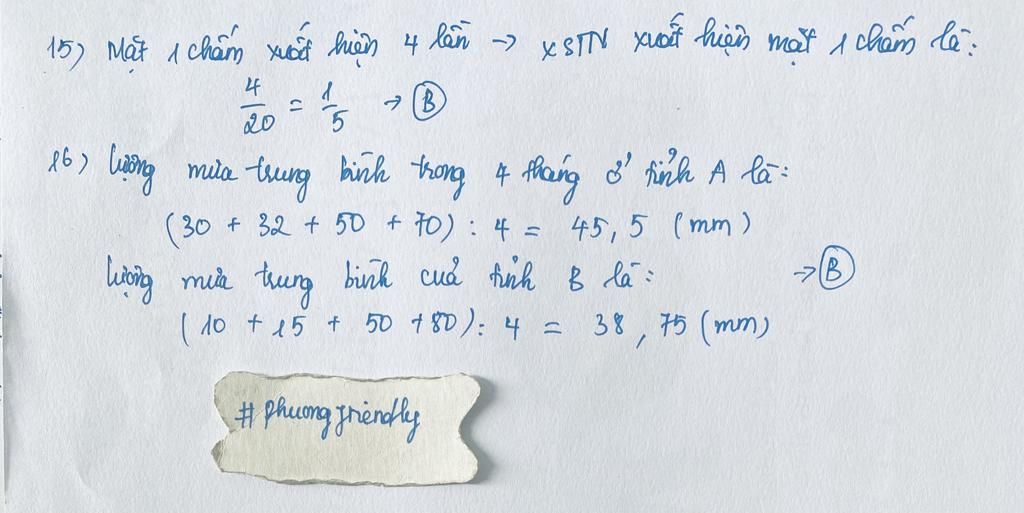 15) Mặt 1 chấm xuất hiện 4 lần → XSTN xuất hiện mặt 1 chấm là:
4/20 = 1/5 → B
16) lượng mưa trung bình trong 4 tháng ở tỉnh A là:
(30 + 32 + 50 + 70) : 4 = 45,5 (mm)
lượng mưa trung bình cuả tỉnh B là: → B
(10 + 15 + 50 + 80) : 4 = 38,75 (mm)
# phuongfriendly